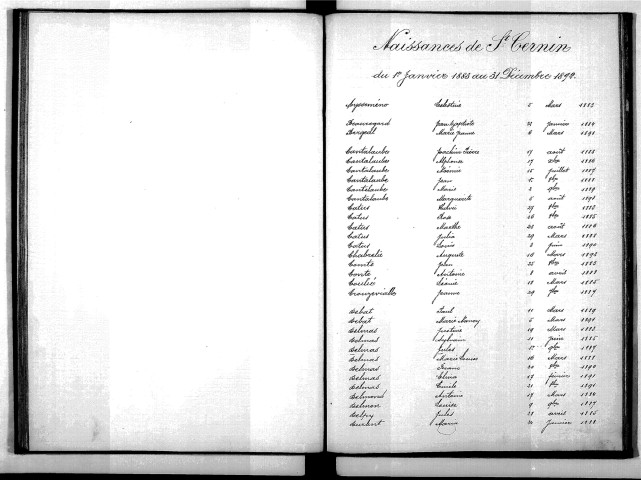 Naissances de St Cernin
du 1er Janvier 1883 au 31 Décembre 1892.
Celestine 5 Mars 1883
Beauregard Jean Baptiste 22 Janvier 1884
Bergeal Marie Jeanne 6 Mars 1891
Cantalaube Joachim Pierre 17 août 1885
Cantalaube Alphonse 17 1886
Cantalaube Noémie 15 juillet 1887
Cantalaube Jean 1888
Cantalaube Marie 2 1889
Cantalaube Marguerite 5 août 1891
Catus 1883
Catus Rose 16 1885
Catus Marthe 26 août 1886
Catus Julia 29 Mars 1888
Catus Louis 2 juin 1890
Chabrelie Auguste 10 Mars 1892
Comte Jean 25 1883
Comte Antoine 8 avril 1888
Coulié Léonie 18 Mars 1885
Crouzevialle Jeanne 29 1887
Debat Paul 11 Mars 1889
Debat Marie Nancy 5 Mars 1891
Delmas Justine 19 Mars 1883
Delmas Sylvain 11 juin 1885
Delmas Jules 1887
Delmas Marie Louise 16 Mars 1888
Delmas 20 1890
Delmas Elina 19 février 1891
Delmas Emile 21 1891
Delmond Antoine 17 Mars 1884
Delmon Louise 9 1887
Delpy Jules 28 avril 1885
Durlent Marie Janvier 1888